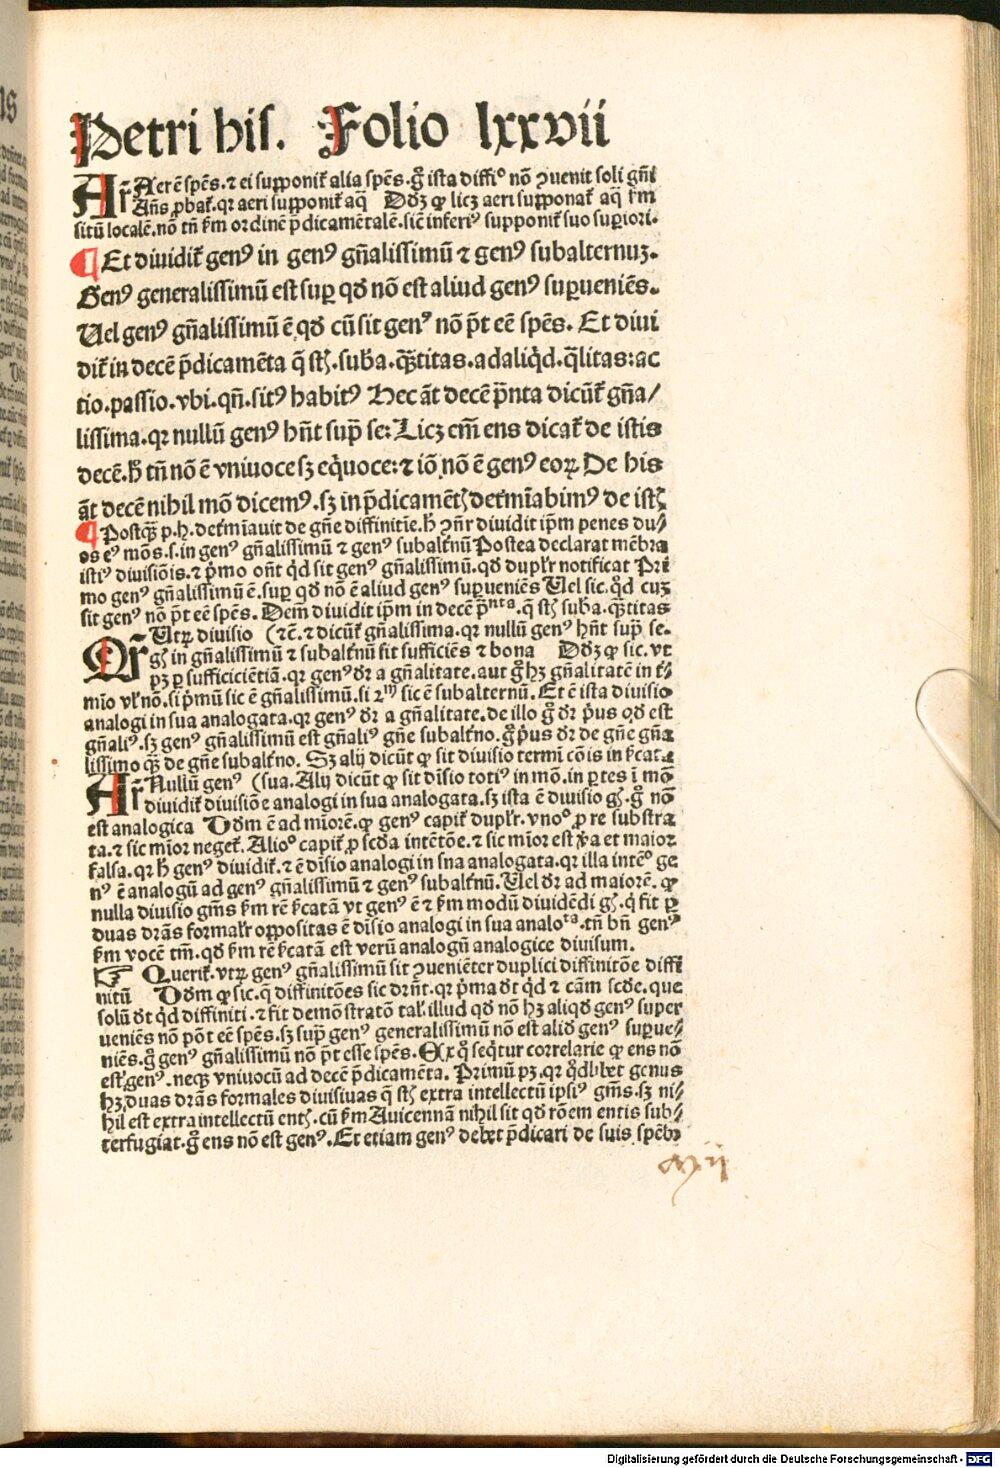 Petri his. Folio lxxvii
Ar̄ Aer eē spēs. ⁊ ei supponit᷑ alia spēs. g̊ ista diffi⁰ nō ꝯuenit soli gn̄i
An̄s ꝓbat᷑. qꝛ aeri supponit᷑ aq̄ Dōꝫ ꝙ licꝫ aeri supponat᷑ aq̄ ẜm
sitū localē. nō tn̄ ẜm ordinē p̄dicamētalē. sic inferiꝰ supponit᷑ suo suꝑiori.
¶ Et diuidit᷑ genꝰ in genꝰ gn̄alissimū ⁊ genꝰ subalternuꝫ.
Genꝰ generalissimū est suꝑ qđ nō est aliud genꝰ suꝑueniēs.
Uel genꝰ gn̄alissimū ē qđ cū sit genꝰ nō p̄t eē spēs. Et diui
dit᷑ in decē p̄dicamēta q̄ sꝉꝫ. sub̄a. qꝫ̄titas. ad aliq̇d. q̄litas: ac
tio. passio. vbi. qn̄. sitꝰ habitꝰ Hec āt decē p̄nta dicūt᷑ gn̄a/
lissima. qꝛ nullū genꝰ hn̄t sup̄ se: Licꝫ em̄ ens dicat᷑ de istis
decē. h̄ tn̄ nō ē vniuoce sꝫ eq̇uoce: ⁊ iō nō ē genꝰ eoꝝ De his
āt decē nihil mō dicemꝰ. sꝫ in p̄dicamētꝭ det᷑mīabimꝰ de istꝭ
¶ Postqꝫ̄ p. h. det᷑mīauit de gn̄e diffinitīe. h̄ ꝯn̄r diuidit ip̄m penes du⸗
os eꝰ mōs. s. in genꝰ gn̄alissimū ⁊ genꝰ subalt᷑nū Postea declarat mēbra
istiꝰ diuisiōis. ⁊ p̄mo on̄t q̇d sit genꝰ gn̄alissimū. qđ duplr̄ notificat Pri
mo genꝰ gn̄alissimū ē. suꝑ qđ nō ē aliud genꝰ suꝑueniēs Uel sic. q̇d cuꝫ
sit genꝰ nō p̄t eē spēs. Dem̄ diuidit ip̄m in decē p̄nta. q̄ sꝉꝫ sub̄a. qꝫ̄titas
Qr̄ Utꝝ diuisio (⁊c̄. ⁊ dicūt᷑ gn̄alissima. qꝛ nullū genꝰ hn̄t sup̄ se.
gn̄ꝭ in gn̄alissimū ⁊ subalt᷑nū sit sufficiēs ⁊ bona Dōꝫ ꝙ sic. vt
pꝫ ꝑ sufficiciētiā. qꝛ genꝰ dr̄ a gn̄alitate. aut g̊ hꝫ gn̄alitatē in t᷑
mīo vl̄ nō. si p̄mū sic ē gn̄alissimū. si 2ᵐ sic ē subalternū. Et ē ista diuisio
analogi in sua analogata. qꝛ genꝰ dr̄ a gn̄alitate. de illo g̊ dr̄ p̄us qđ est
gn̄aliꝰ. sꝫ genꝰ gn̄alissimū est gn̄aliꝰ gn̄e subalt᷑no. g̊ p̄us dr̄ de gn̄e gn̄a
lissimo qꝫ̄ de gn̄e subalt᷑no. Sꝫ alij dicūt ꝙ sit diuisio termī cōis in ẜcat.
Ar̄ Nullū genꝰ (sua. Alij dicūt ꝙ sit dīsio totiꝰ in mō. in ꝑtes ī mō
diuidit᷑ diuisiōe analogi in sua analogata. sꝫ ista ē diuisio gꝭ. g̊ nō
est analogica Dōm ē ad mīorē. ꝙ genꝰ capit᷑ duplr̄. vnoº ꝓ re substra
ta. ⁊ sic mīor neget᷑. Alioº capit᷑ ꝓ scđa intētōe. ⁊ sic mīor est v̄a et maior
falsa. qꝛ h̄ genꝰ diuidit᷑. ⁊ ē dīsio analogi in sna analogata. qꝛ illa intēº ge
nꝰ ē analogū ad genꝰ gn̄alissimū ⁊ genꝰ subalt᷑nū. Uel dr̄ ad maiorē. ꝙ
nulla diuisio gn̄is ẜm rē ẜcatā vt genꝰ ē ⁊ ẜm modū diuidēdi gꝭ. q̇ fit ꝑ
duas dr̄as formalr̄ oppositas ē dīsio analogi in sua analoᵗᵃ. tn̄ bn̄ genꝰ
ẜm vocē tm̄. qđ ẜm rē ẜcatā est verū analogū analogice diuisum.
☞ Querit᷑. vtꝝ genꝰ gn̄alissimū sit ꝯueniēter duplici diffinitōe diffi
nitū Dōm ꝙ sic. q̄ diffinitōes sic dr̄nt. qꝛ p̄ma dt̄ q̇d ⁊ cām scđe. que
solū dt̄ q̇d diffiniti. ⁊ fit demōstratō tal̄. illud qđ nō hꝫ aliqđ genꝰ super
ueniēs nō pōt eē spēs. sꝫ sup̄ genꝰ generalissimū nō est aliđ genꝰ suꝑue⸗
niēs. g̊ genꝰ gn̄alissimū nō p̄t esse spēs. Ex q̊ seq̇tur correlarie ꝙ ens nō
est genꝰ. neqꝫ vniuocū ad decē p̄dicamēta. Primū pꝫ. qꝛ q̊dlibet genus
hꝫ duas dr̄as formales diuisiuas q̄ sꝉꝫ extra intellectū ipsiꝰ gn̄is. sꝫ ni⸗
hil est extra intellectū entꝭ. cū ẜm Auicennā nihil sit qđ rōem entis sub⸗
terfugiat. g̊ ens nō est genꝰ. Et etiam genꝰ debet p̄dicari de suis spēbꝫ
Digitalisierung gefördert durch die Deutsche Forschungsgemeinschaft - DFG